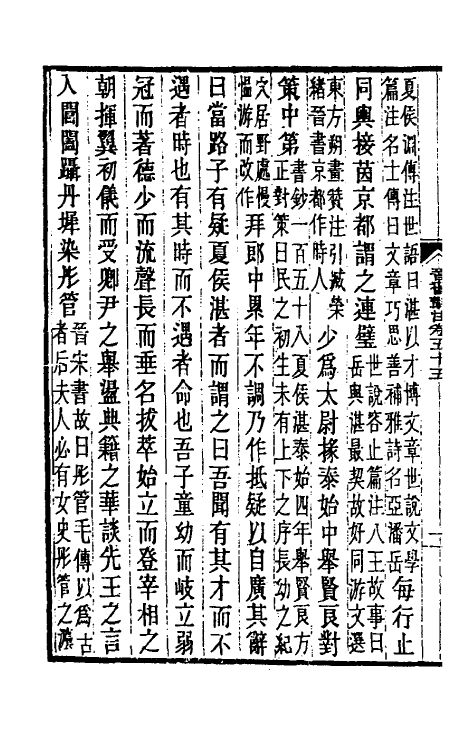 夏侯淵傳注世語曰湛以才博文章世說文學篇注名士傳曰文章巧思善補雅詩名亞潘岳每行止
同輿接茵京都謂之連璧世說容止篇注八王故事曰岳與湛最契故好同游文選
東方朔畫贊注引臧榮緒晉書京都作時人少爲太尉掾泰始中舉賢良對
策中第書鈔一百五十八夏侯湛泰始四年舉賢良方正對策曰民之初生未有上下之序長幼之紀
穴居野處慢慍游而改作拜郎中累年不調乃作抵疑以自廣其辭
曰當路子有疑夏侯湛者而謂之曰吾聞有其才而不
遇者時也有其時而不遇者命也吾子童幼而岐立弱
冠而著德少而流聲長而垂名拔萃始立而登宰相之
朝揮翼初儀而受卿尹之舉盪典籍之華談先王之言
入閶闔躡丹墀染彤管晉宋書故曰彤管毛傳以爲古者后夫人必有女史彤管之灋
晉書斠注卷五十五